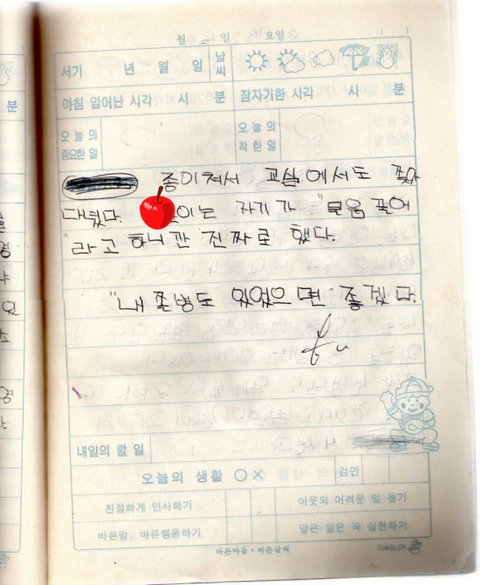 월 일 요일 ( )
서기 년 월 일 날씨
아침 일어난 시각 시 분 잠자기한 시각 시 분
오늘의 중요한 일 오늘의 착한 일
종이쳐서 교실에서도 쫓아
다녔다. 이는 자기가 "무릎 꿇어
"라고 하니깐 진짜로 했다.
"내 쫄병도 있었으면 좋겠다.
내일의 할 일
오늘의 생활 ○× 확인
친절하게 인사하기 이웃의 어려운 일 돕기
바른말 바른행동하기 맡은 일은 꼭 실천하기
바른마음•바른글씨 TUMBLER